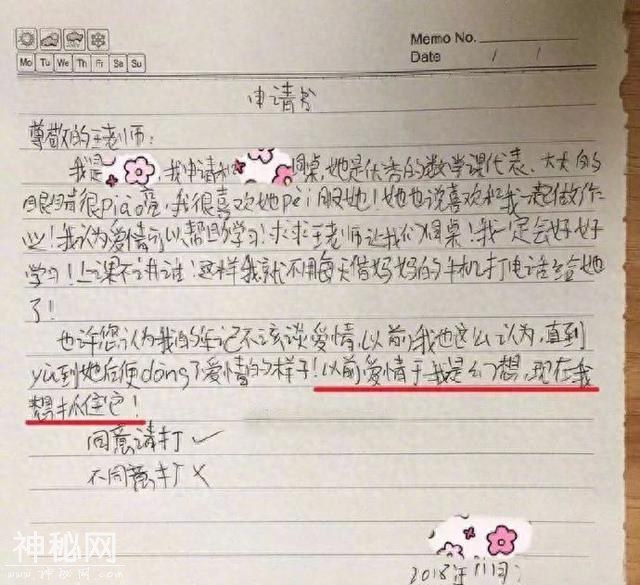 Memo No.
Mo Tu We Th Fr Sa Su
Date / /
申请书
尊敬的王老师:
我是 ,我申请和 同桌,她是优秀的数学课代表、大大的
眼睛很piào亮!我很喜欢她pèi服她!她也说喜欢和我一起做作
业!我认为爱情可以帮助学习!求求王老师让我们同桌!我一定会好好
学习!上课不讲话!这样我就不用每天借妈妈的手机打电话给她
了!
也许您认为我的年记不该谈爱情,以前我也这么认为,直到
yù到她后便dǒng了爱情的样子!以前爱情于我是幻想,现在我
想抓住它!
同意请打✓
不同意打×
2018年11月
神秘网